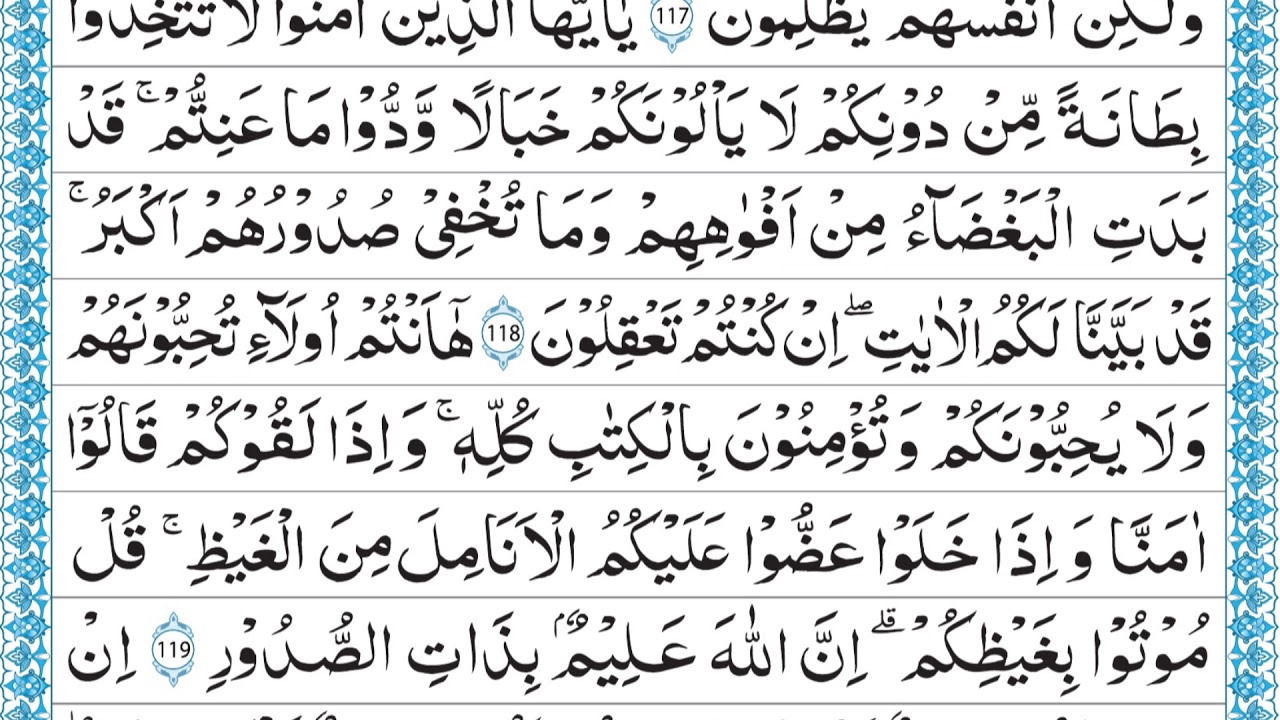 وَلٰكِنْ اَنْفُسَهُمْ يَظْلِمُوْنَ 117 يٰۤاَيُّهَا الَّذِيْنَ اٰمَنُوْا لَا تَتَّخِذُوْا
بِطَانَةً مِّنْ دُوْنِكُمْ لَا يَاْلُوْنَكُمْ خَبَالًا وَّدُّوْا مَا عَنِتُّمْ ۚ قَدْ
بَدَتِ الْبَغْضَآءُ مِنْ اَفْوٰهِهِمْ وَمَا تُخْفِيْ صُدُوْرُهُمْ اَكْبَرُ ۚ
قَدْ بَيَّنَّا لَكُمُ الْاٰيٰتِ ۖ اِنْ كُنْتُمْ تَعْقِلُوْنَ 118 هٰٓاَنْتُمْ اُولَآءِ تُحِبُّوْنَهُمْ
وَلَا يُحِبُّوْنَكُمْ وَتُؤْمِنُوْنَ بِالْكِتٰبِ كُلِّهٖ ۚ وَاِذَا لَقُوْكُمْ قَالُوْٓا
اٰمَنَّا وَاِذَا خَلَوْا عَضُّوْا عَلَيْكُمُ الْاَنَامِلَ مِنَ الْغَيْظِ ۚ قُلْ
مُوْتُوْا بِغَيْظِكُمْ ۗ اِنَّ اللّٰهَ عَلِيْمٌۢ بِذَاتِ الصُّدُوْرِ 119 اِنْ